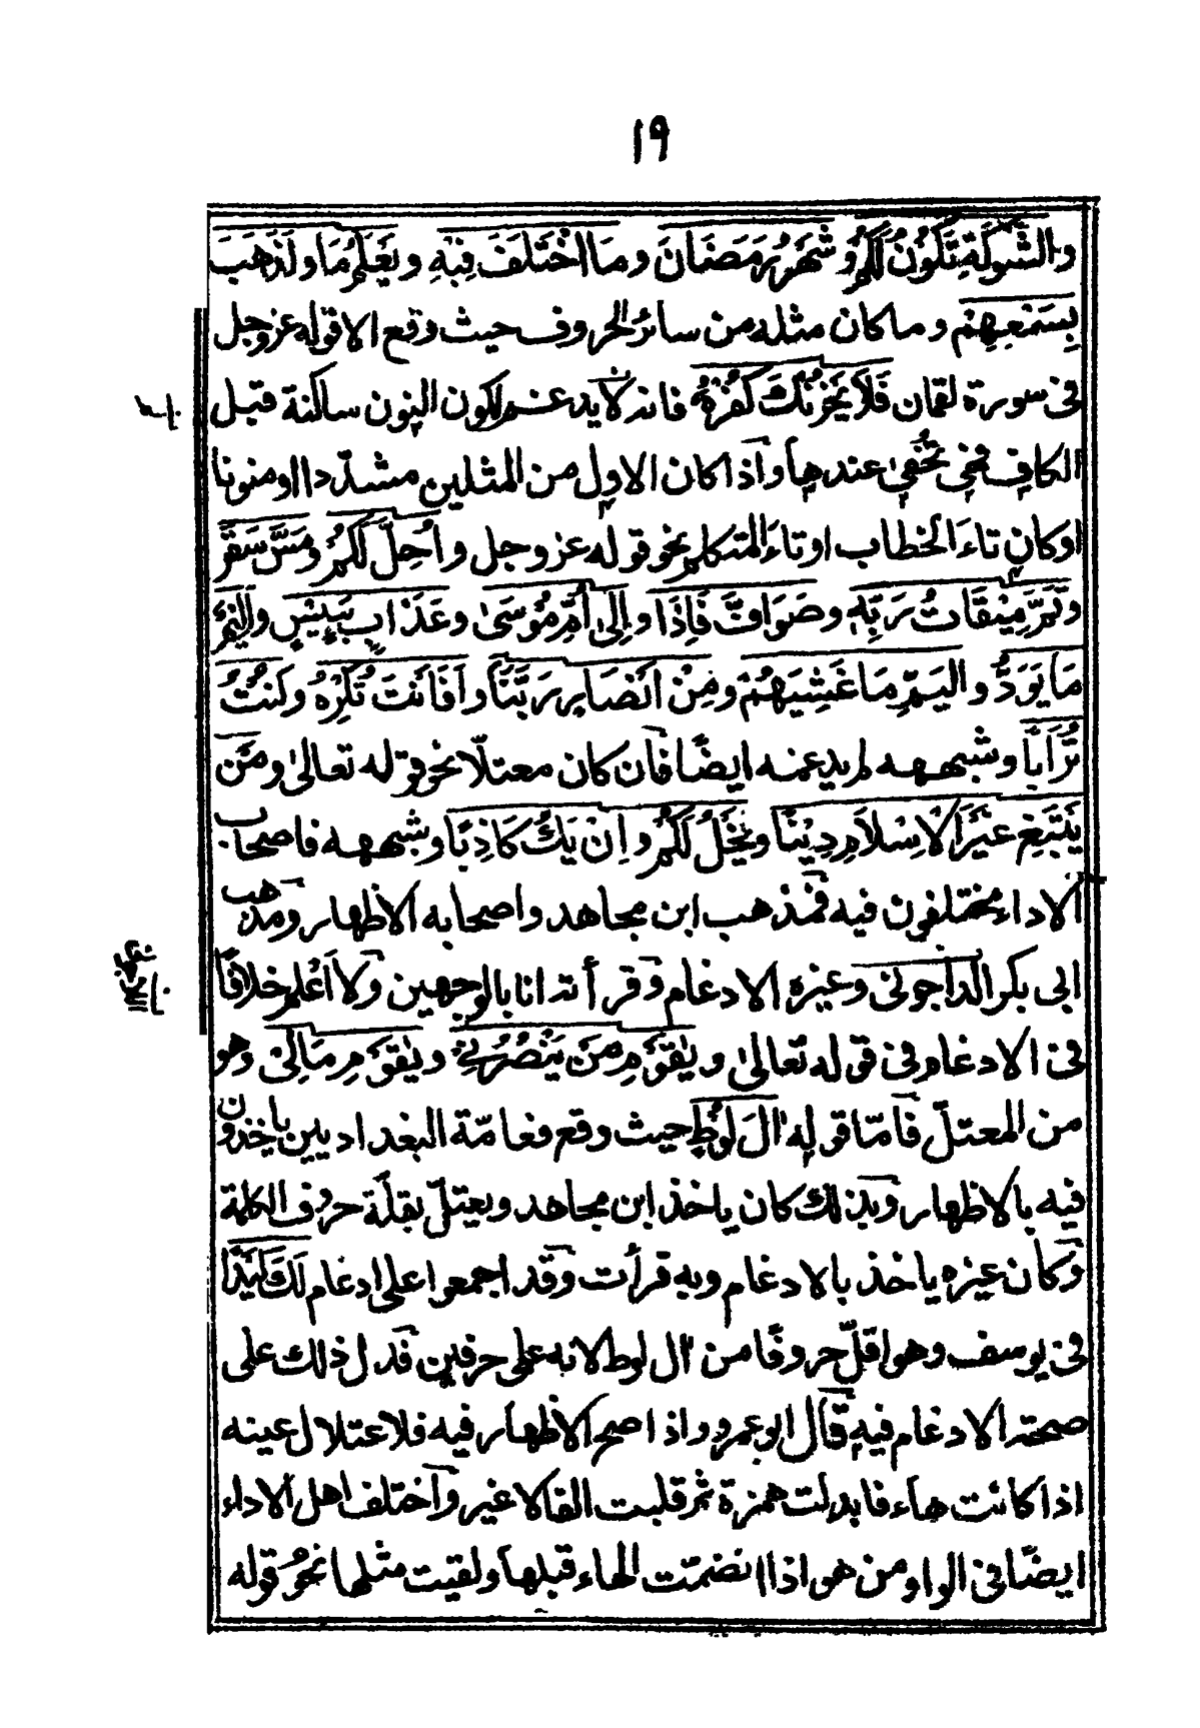 ١٩
والشَّوْكَةِ تَكُونُ لَكُمْ وشَهْرُ رَمَضَانَ وما اخْتَلَفَ فِيْهِ ويَعْلَمُ مَا ولَذَهَبَ
بِسَمْعِهِمْ وما كان مثله من سائر الحروف حيث وقع الا قوله عز وجل
فى سورة لقمان فَلَا يَحْزُنْكَ كُفْرُهُ فانه لا يدغم لكون النون ساكنة قبل
الكاف فهى تخفى عندها واذا كان الاول من المثلين مشدّدا او منونا
او كان تاءَ الخطاب او تاءَ المتكلم نحو قوله عز وجل واُحِلَّ لَكُمْ ومَسَّ سَقَرَ
وتَمَّ مِيْقَاتُ رَبِّهِ وصَوَافَّ فَاِذَا واِلىٰ اُمِّ مُوْسَىٰ وعَذَابٍ بَئِيْسٍ والِيْمٌ
مَا يَوَدُّ والْيَمِّ مَا غَشِيَهُمْ ومِنْ اَنْصَارٍ رَبَّنَا واَفَاَنْتَ تُكْرِهُ وكُنْتُ
تُرَابًا وشبهه لم يدغمه ايضًا فان كان معتلّا نحو قوله تعالىٰ ومَنْ
يَبْتَغِ غَيْرَ الْاِسْلَامِ دِيْنًا ويَخْلُ لَكُمْ واِنْ يَكُ كَاذِبًا وشبهه فاصحاب
الاداء مختلفون فيه فمذهب ابن مجاهد واصحابه الاظهار ومذهب
ابى بكر الداجونى وغيره الادغام وقرأته انا بالوجهين ولا اَعْلم خلافًا
فى الادغام فى قوله تعالىٰ ويٰقَوْمِ مَنْ يَنْصُرُنِيْ ويٰقَوْمِ مَا لِىْ وهو
من المعتلّ فامّا قوله اٰلَ لُوْطٍ حيث وقع فعامّة البغداديين ياخذون
فيه بالاظهار وبذلك كان ياخذ ابن مجاهد ويعتلّ بقلّة حروف الكلمة
وكان غيره ياخذ بالادغام وبه قرأت وقد اجمعوا على ادغام لَكَ كَيْدًا
فى يوسف وهو اقلّ حروفًا من اٰل لوط لانه على حرفين فدل ذلك على
صحته الادغام فيه قال ابو عمرو واذا صح الاظهار فيه فلاعتلال عينه
اذا كانت هاء فابدلت همزة ثم قلبت الفا لا غير واختلف اهل الاداء
ايضًا فى الواو من هو اذا انضمّت الهاء قبلها ولقيت مثلها نحو قوله